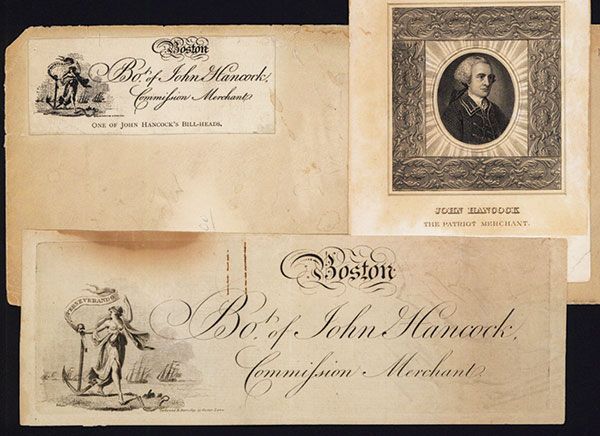 Boston
Bot. of John Hancock,
Commiſsion Merchant
ONE OF JOHN HANCOCK'S BILL-HEADS.
JOHN HANCOCK
THE PATRIOT MERCHANT.
PERSEVERANDO
Boston
Bot. of John Hancock,
Commiſsion Merchant